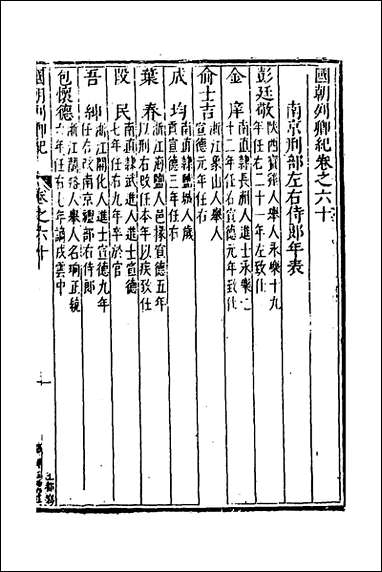 國朝列卿紀卷之六十
南京刑部左右侍郎年表
彭廷敬 陝西寶雞人舉人永樂十九
年任右二十一年左致仕
金庠 南直隸長洲人進士永樂二
十二年任右宣德元年致仕
俞士吉 浙江象山人舉人
宣德元年任右
成均 南直隸鹽城人歲
貢宣德三年任右
葉春 浙江海鹽人邑掾宣德五年
以刑右改任本年以疾致仕
段民 南直隸武進人進士宣德
七年任右九年卒於官
吾紳 浙江開化人進士宣德九年
任右改南京禮部右侍郎
包懷德 浙江蘭谿人舉人名瑜正統
六年任右七年謫戍雲中
國朝列卿紀 卷之六十 一